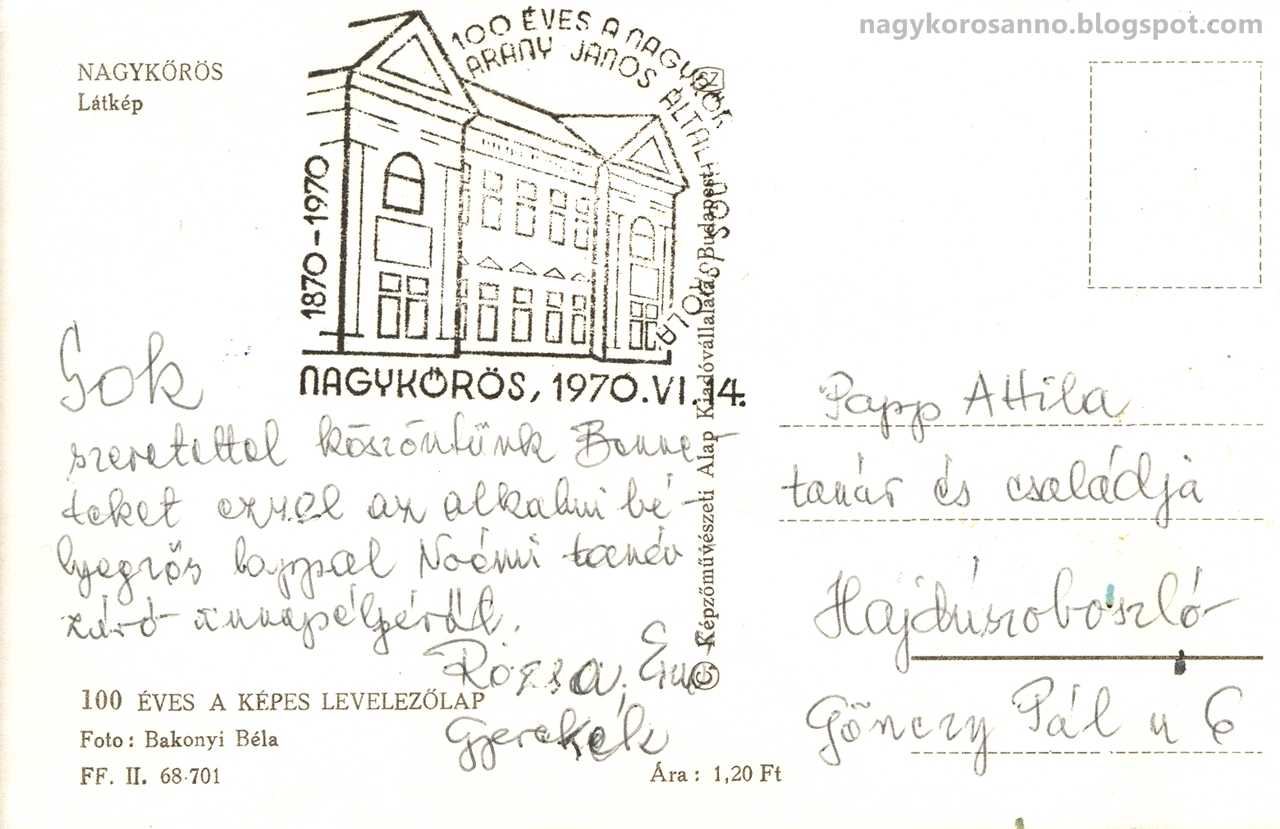 nagykorosanno.blogspot.com
NAGYKŐRÖS
Látkép
100 ÉVES A NAGYKŐR
ARANY JÁNOS ÁLTALÁNOS ISKOLA
1870-1970
NAGYKŐRÖS, 1970.VI.14.
Sok
szeretettel köszöntünk Benne-
teket ezzel az alkalmi bé-
lyegzős lappal Noémi tanév
záró ünnepélyéről.
Rózsa,
Gyerekek
100 ÉVES A KÉPES LEVELEZŐLAP
Foto: Bakonyi Béla
FF. II. 68-701
Ára: 1,20 Ft
© Képzőművészeti Alap Kiadóvállalata, Budapest
Papp Attila
tanár és családja
Hajdúszoboszló
Gönczy Pál u 6